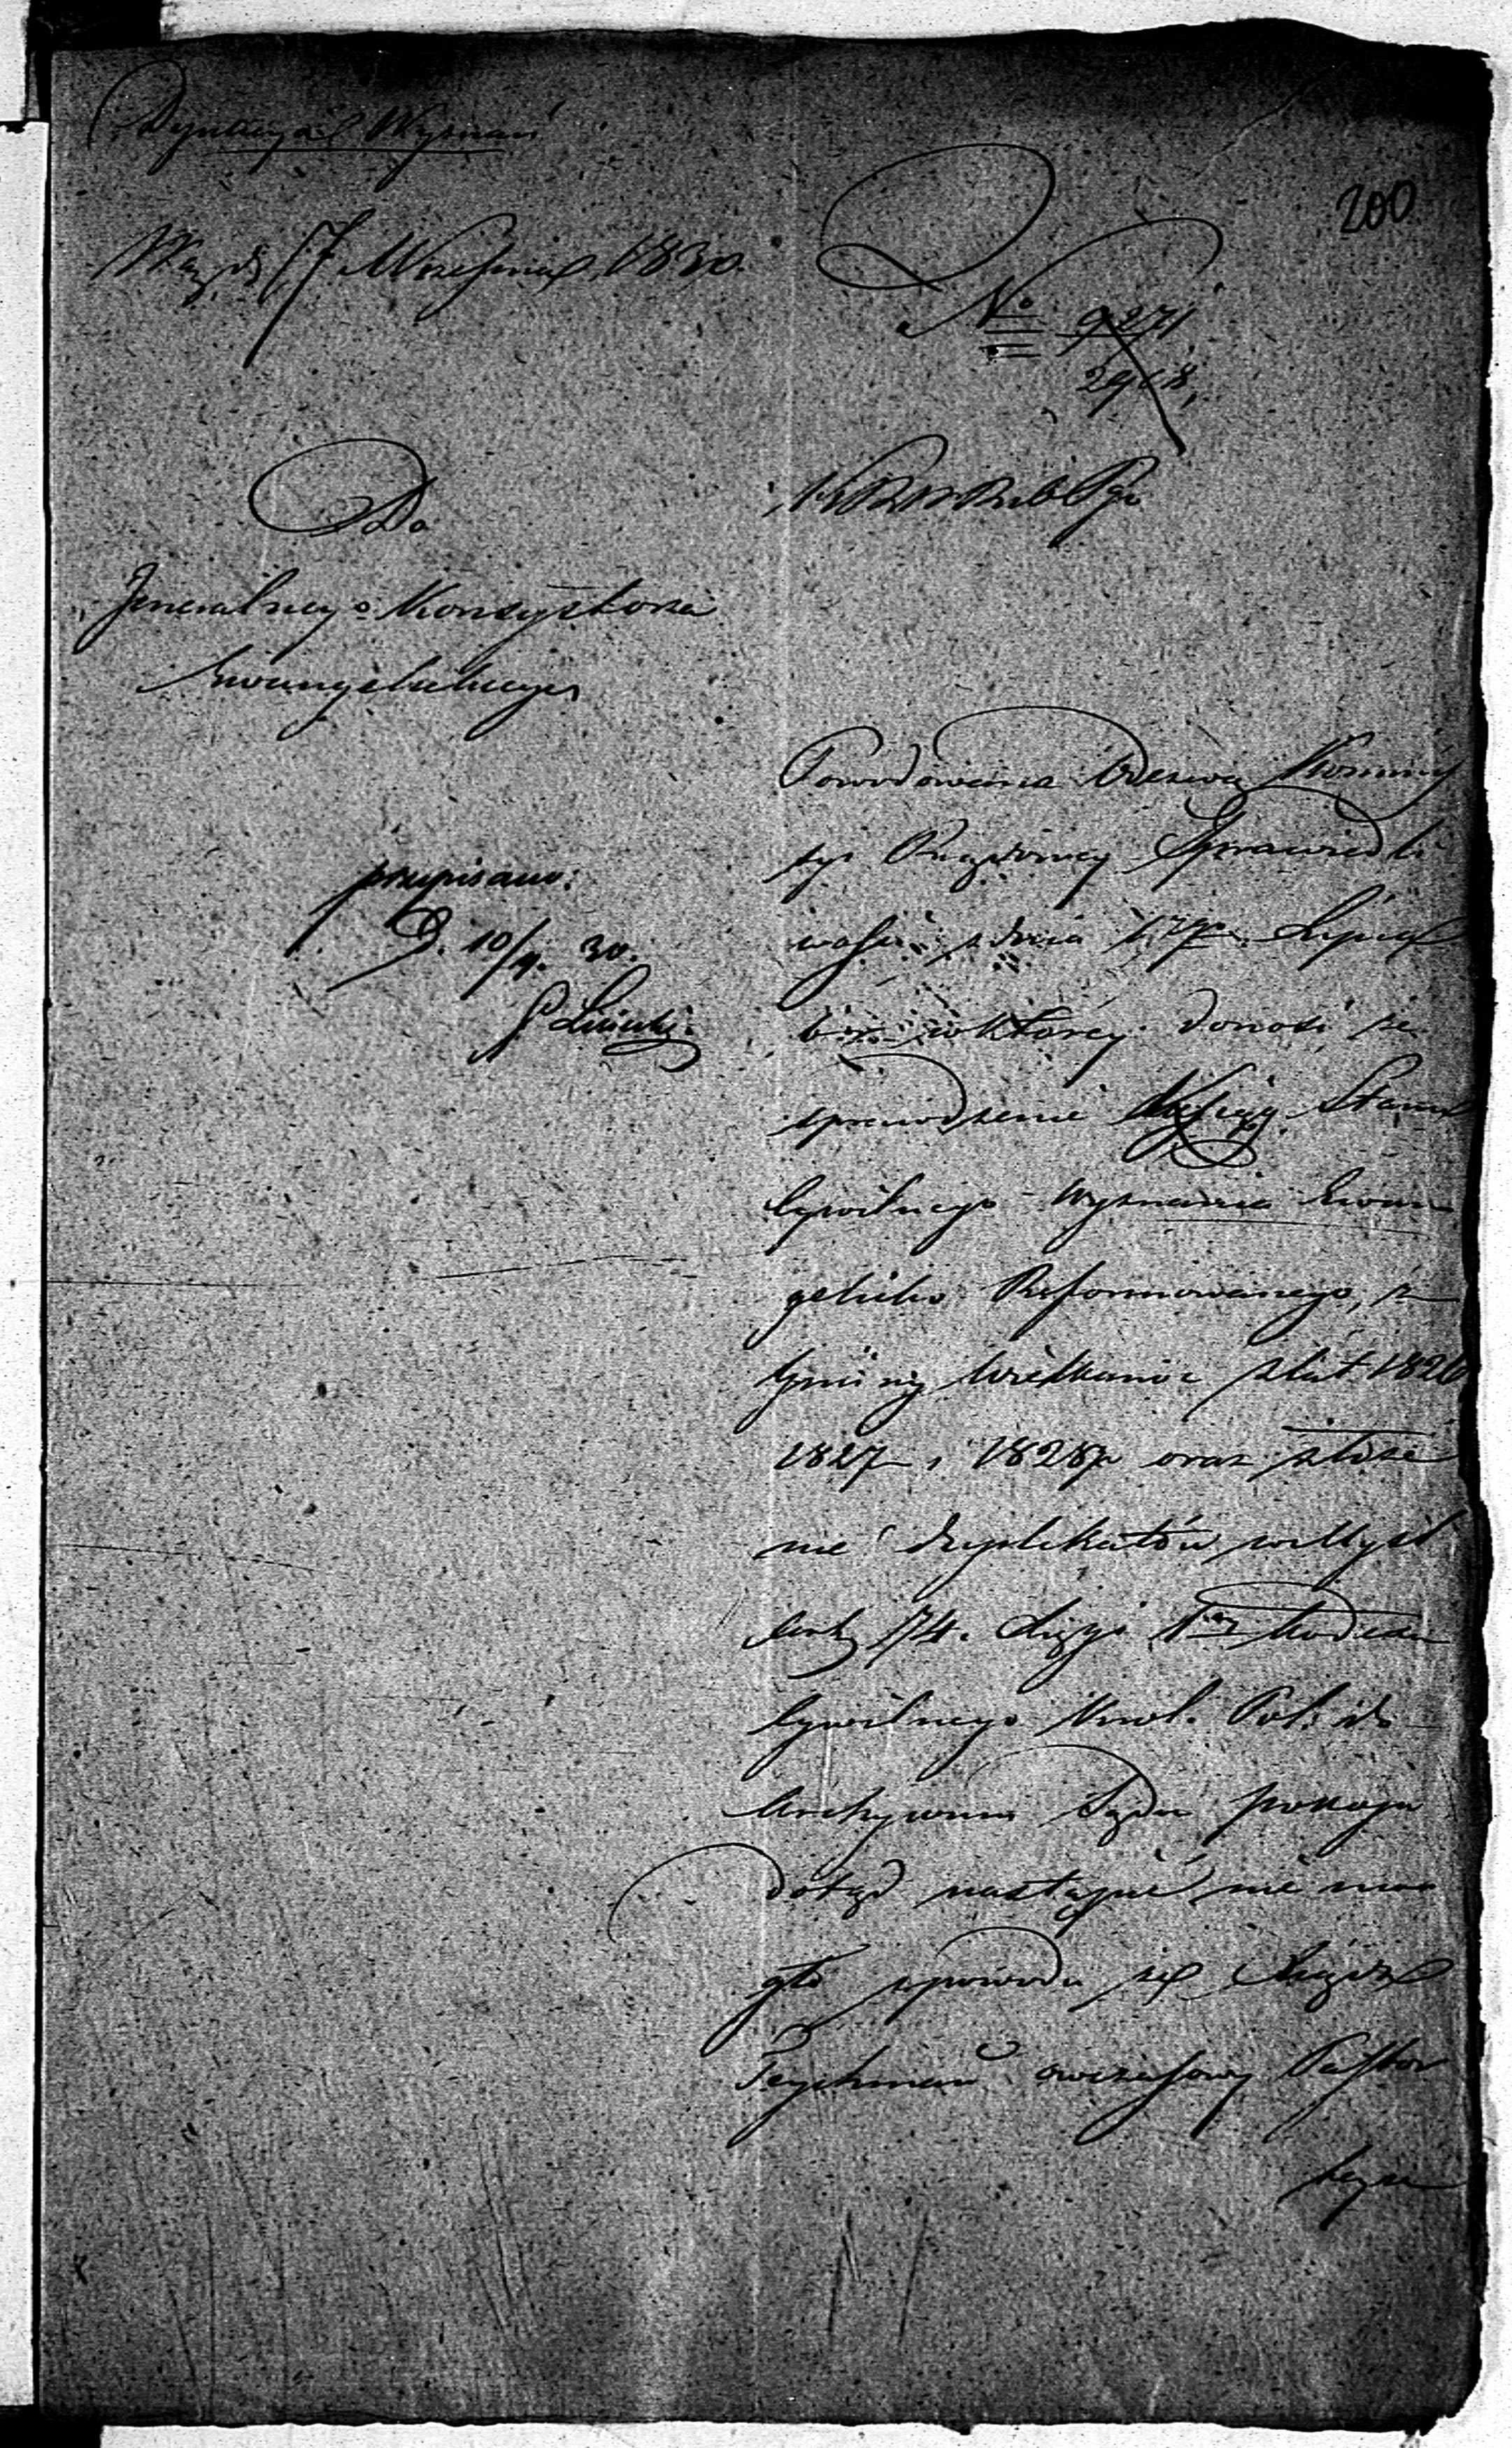 Dyrekcya Wyznań
200
17 Września 1830.
No 9271
2968,
Do
Jeneralnego Konsystorza
Ewangelickiego
przepisano:
D. 10/9. 30.
Powodowana Odezwą Kommis
syi Rządowey Sprawiedli
wości z dnia 17go Lipca
b.r. w którey donosi, że
sprawdzenie Xsiąg Stanu
Cywilnego Wyznania Ewan
gelicko Reformowanego, z
Gminy Wielkanoc z lat 1826
1827 i 1828 oraz złoże
nie duplikatów w Myśl
74. Xięgi Kodexu
Cywilnego Król. Pol: do
Archywum Sądu pokoju
dotąd nastąpić nie mo
gło z powodu, że Xiądz
Teychman owczasowy Pastor